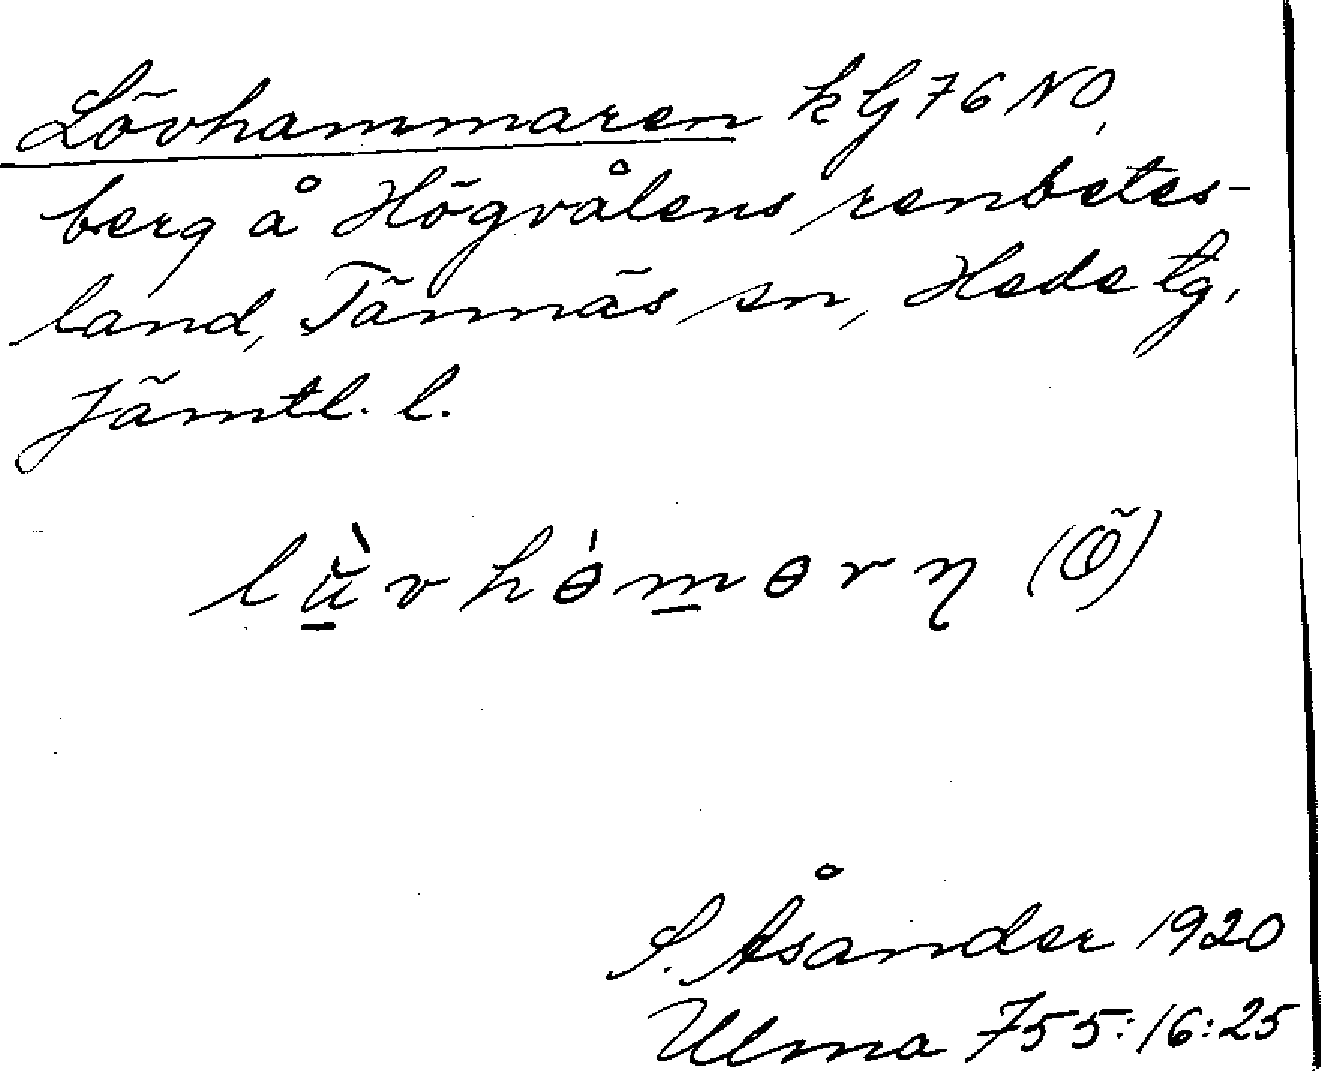 Lövhammaren k G 76 NO,
berg å Högvålens renbetes-
land, Tännäs sn, Hede tg,
Jämtl. l.
lù̲vhɵ̍m̲ɵrŋ (Õ)
S. Åsander 1920
Ulma 755:16:25